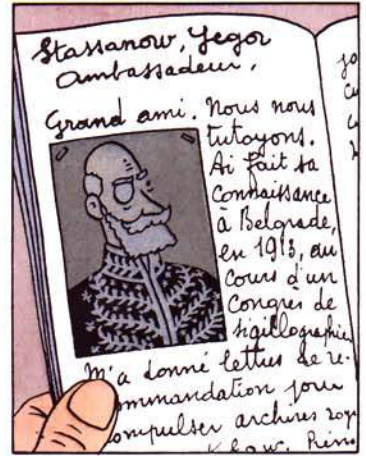 Stassanow, Yegor
Ambassadeur.
Grand ami. Nous nous
tutoyons.
Ai fait sa
connaissance
à Belgrade,
en 1913, au
cours d'un
Congrès de
sigillographie
M'a donné lettres de re-
mmandation pour
ompulser archives